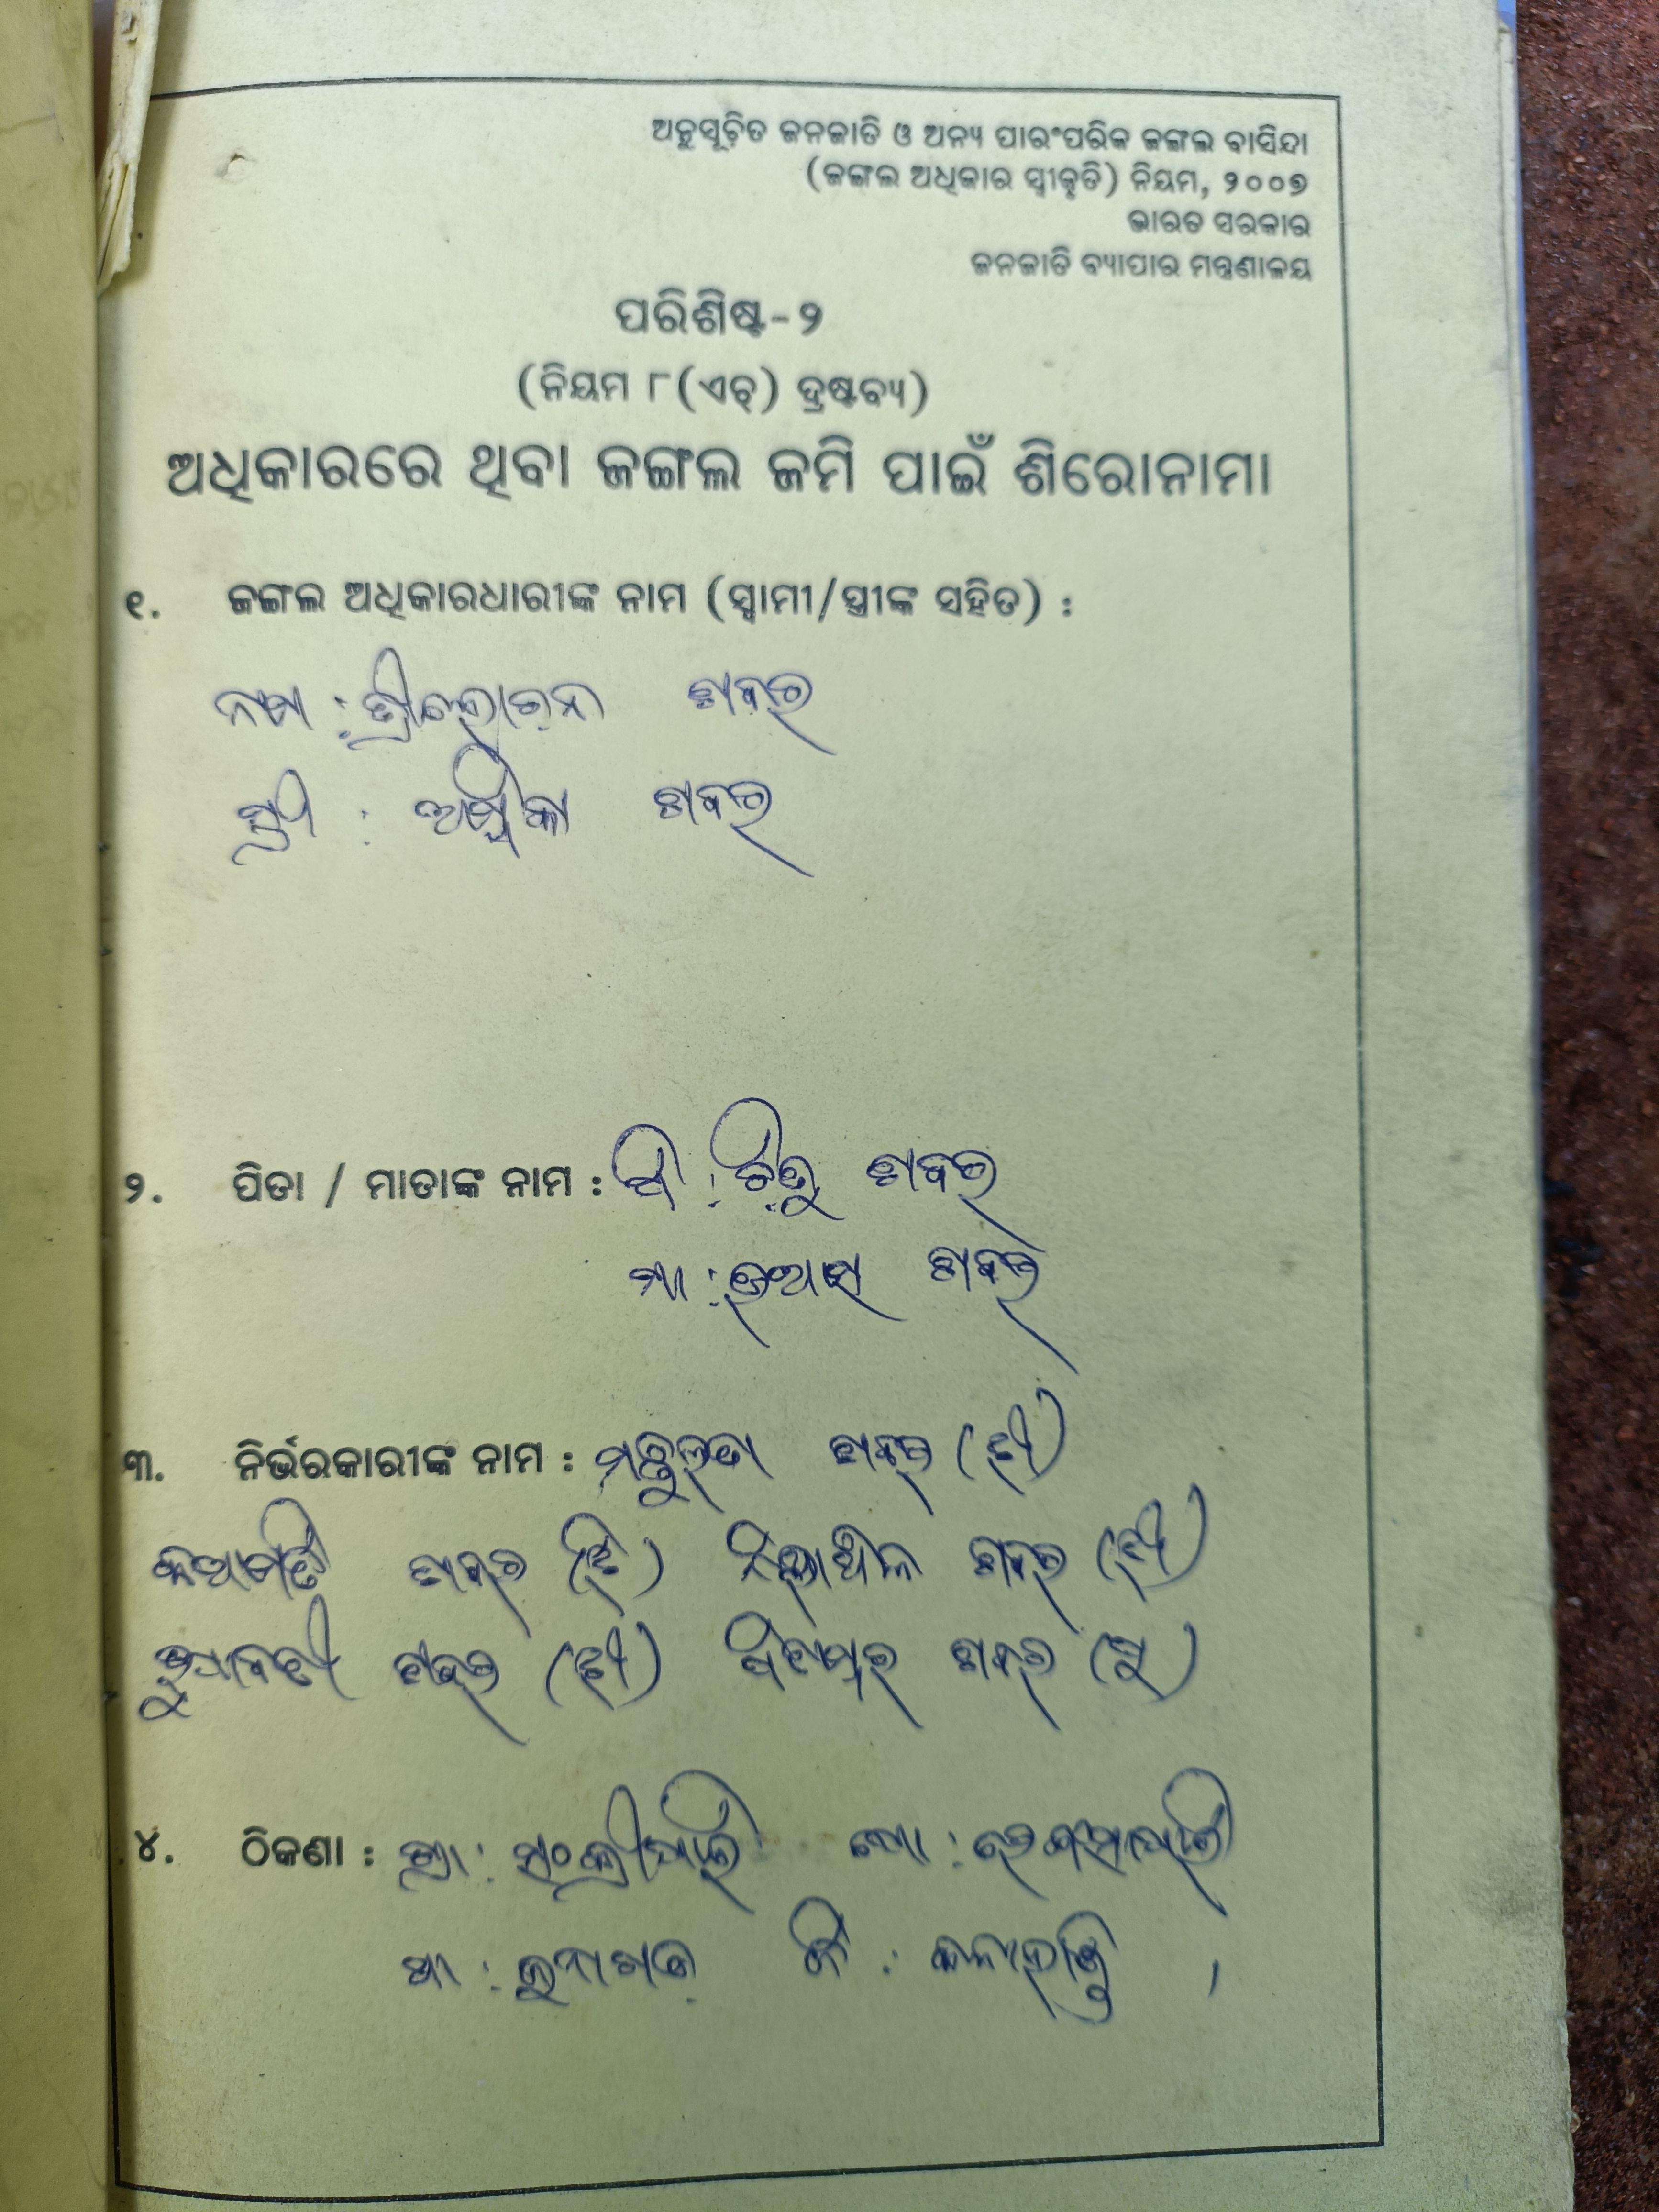 ଅନୁସୂଚିତ ଜନଜାତି ଓ ଅନ୍ୟ ପାରଂପରିକ ଜଙ୍ଗଲ ବାସିନ୍ଦା
(ଜଙ୍ଗଲ ଅଧିକାର ସ୍ୱୀକୃତି) ନିୟମ, ୨୦୦୭
ଭାରତ ସରକାର
ଜନଜାତି ବ୍ୟାପାର ମନ୍ତ୍ରଣାଳୟ
ପରିଶିଷ୍ଟ-୨
(ନିୟମ ୮(ଏଚ୍) ଦ୍ରଷ୍ଟବ୍ୟ)
ଅଧିକାରରେ ଥିବା ଜଙ୍ଗଲ ଜମି ପାଇଁ ଶିରୋନାମା
୧. ଜଙ୍ଗଲ ଅଧିକାରଧାରୀଙ୍କ ନାମ (ସ୍ୱାମୀ/ସ୍ତ୍ରୀଙ୍କ ସହିତ) :
ନାମ : ତ୍ରୀଲୋଚନ ଶବର
ସ୍ତ୍ରୀ : ଅମ୍ବିକା ଶବର
୨. ପିତା / ମାତାଙ୍କ ନାମ : ପି : ଶବର
ମା : ଶବର
୩. ନିର୍ଭରକାରୀଙ୍କ ନାମ : ଶବର (ଝୀ)
ଶବର (ଝି) ଶବର (ଝୀ)
ଶବର (ଝୀ) ପିତାମ୍ବର ଶବର (ପୁ)
୪. ଠିକଣା : ଗ୍ରା : ପୋ :
ଥା : ଜୁନାଗଡ ଜି : କଳାହାଣ୍ଡି ,